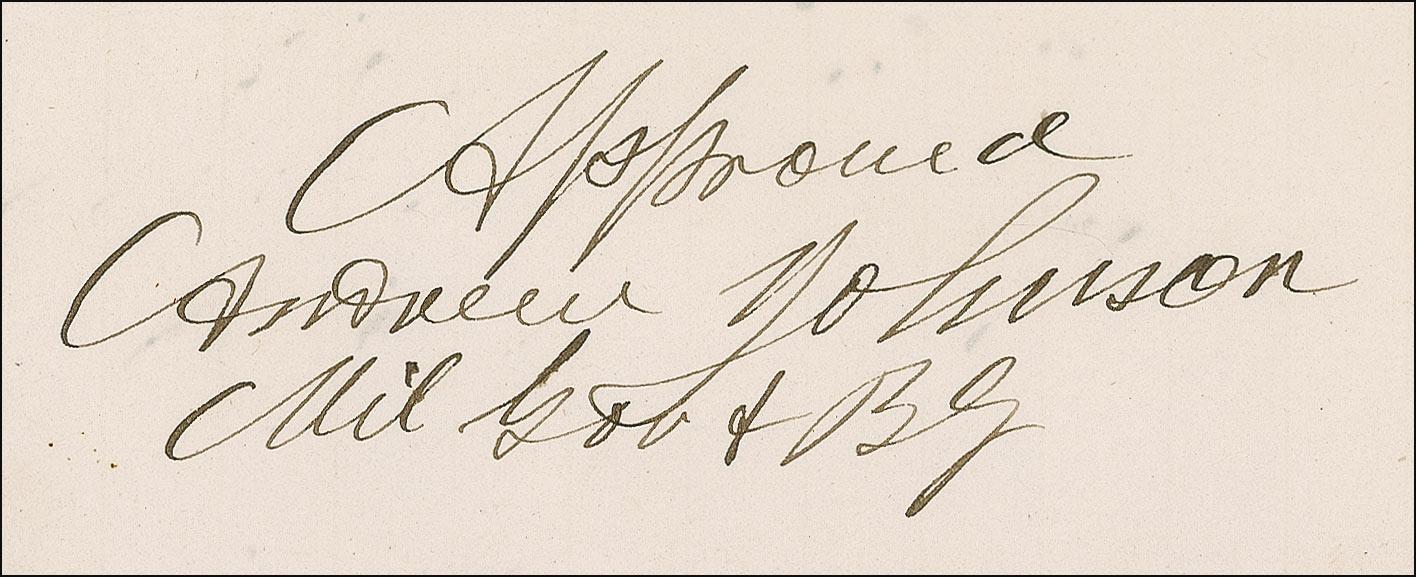 Approved
Andrew Johnson
Mil Gov & B G